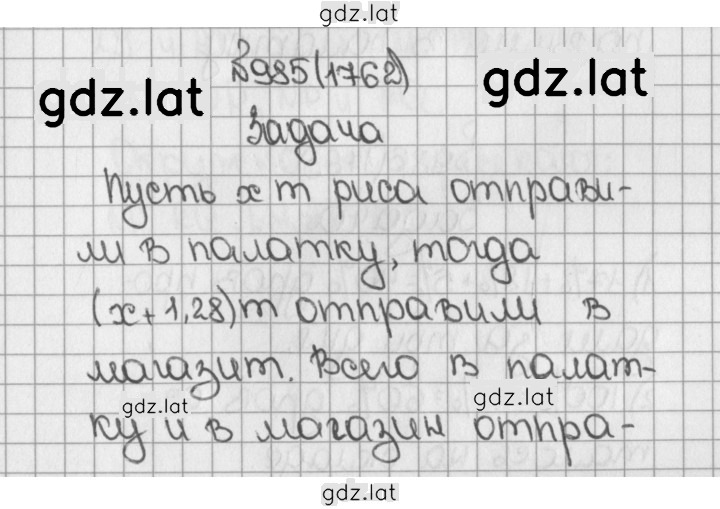 gdz.lat
№985(1762)
gdz.lat
gdz.lat
Задача
Пусть x т риса отправи-
ли в палатку, тогда
(x+1,28)т отправили в
магазит. Всего в палат-
gdz.lat
gdz.lat
ку и в магазин отпра-
gdz.lat